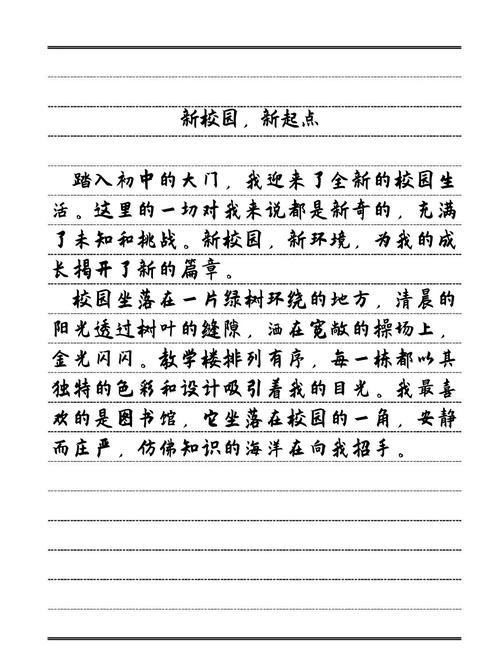 新校园，新起点
踏入初中的大门，我迎来了全新的校园生
活。这里的一切对我来说都是新奇的，充满
了未知和挑战。新校园，新环境，为我的成
长揭开了新的篇章。
校园坐落在一片绿树环绕的地方，清晨的
阳光透过树叶的缝隙，洒在宽敞的操场上，
金光闪闪。教学楼排列有序，每一栋都以其
独特的色彩和设计吸引着我的目光。我最喜
欢的是图书馆，它坐落在校园的一角，安静
而庄严，仿佛知识的海洋在向我招手。